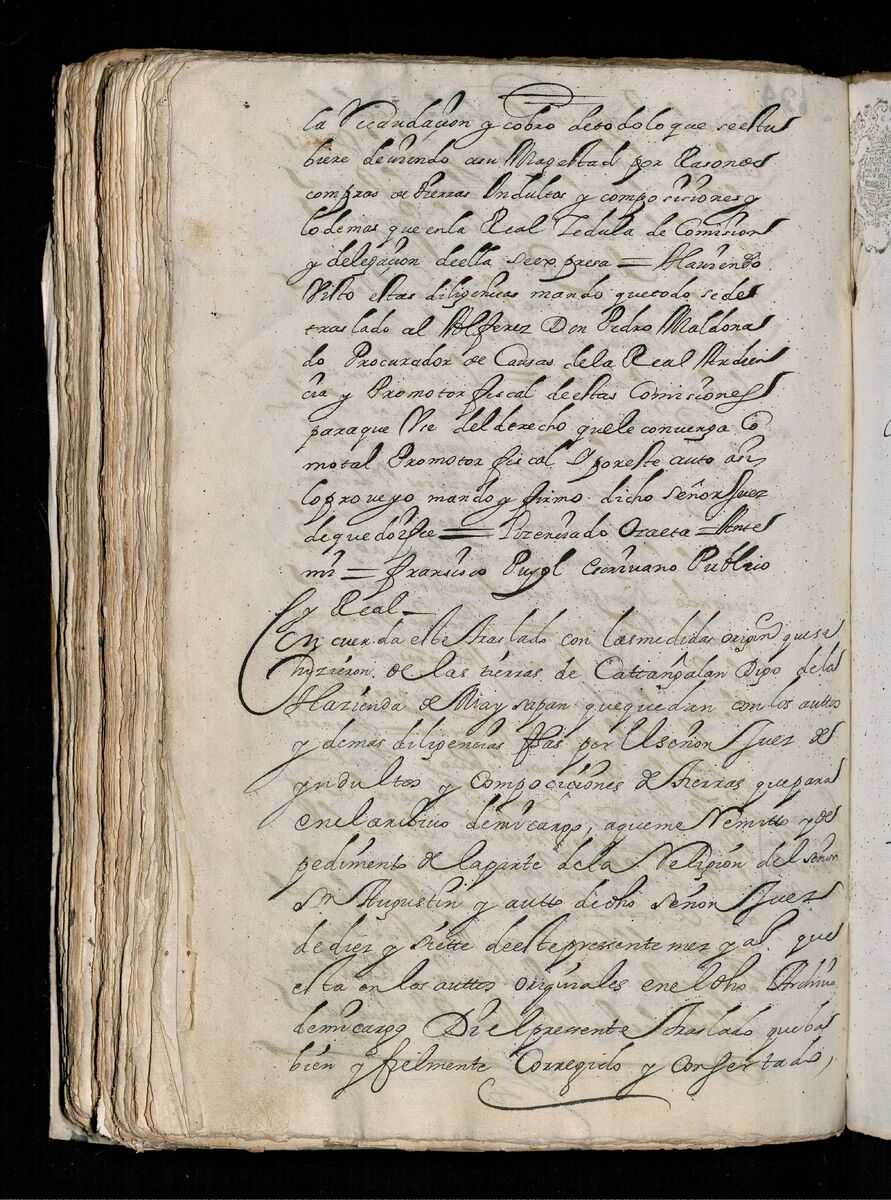 la Recaudacion y cobro detodo lo que se estu
biere deuiendo asu Magestad por Rason de
compras de tierras Indultos y composisiones y
lo demas que en la Real Zedula de Comision
y delegacion de ella se expresa = Hauiendo
Visto estas diligencias mando que todo se de
traslado al Alferez Don Pedro Maldona
do Procurador de Causas de la Real Audien
cia y Promotor fiscal de estas Comisiones
para que Vse del derecho que le conuenga Co
mo tal Promotor fiscal Y por este auto asi
lo proveyo mando y firmo dicho Señor Juez
de que doi fee = Lizenciado Ozaeta = Ante
mi = Fransisco Pujol Escriuano Publico
y Real
Concuerda este traslado con las medidas origin que se
hizieron de las tierras de Catcangalan Digo de la
Hazienda de Maysapan que quedan con los auttos
y demas diligencias fhas por el señor Juez de
yndultos y Compociciones de tierras que para
en el archiuo de mi cargo, a que me Remitto y de
pedimento de la parte de la Religion del señor
Sn Augustin y autto de dicho señor Juez
de diez y Siette de este pressente mez y al que
esta en los auttos originales en el dho Archiuo
de mi cargo Di el pressente traslado que ba
bien y fielmente Corregido y Consertado,